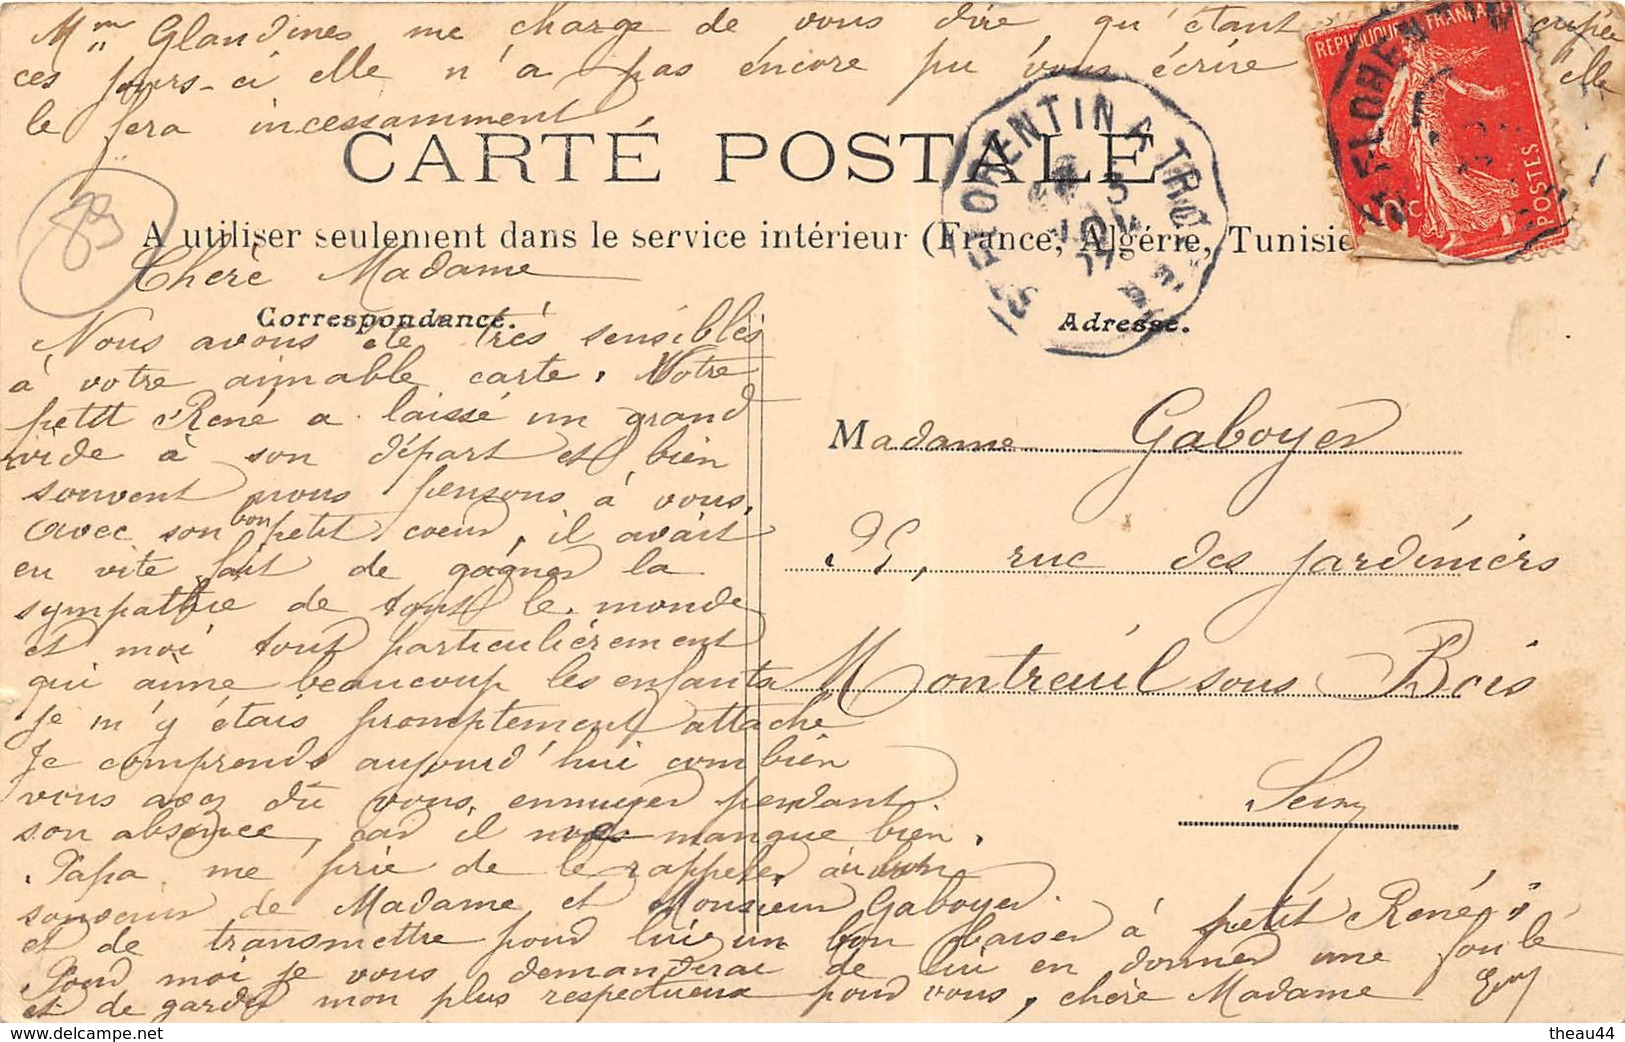 Mme Glandines me charge de vous dire, qu'étant
ces jours-ci elle n'a pas encore pu vous écrire elle
le fera incessamment
CARTE POSTALE
ST FLORENTIN A TRO
RÉPUBLIQUE FRANÇAISE
10c
POSTES
85
A utiliser seulement dans le service intérieur (France, Algérie, Tunisie
Chère Madame
Correspondance.
Adresse.
Nous avons été très sensibles
à votre aimable carte. Votre
petit René a laissé un grand
vide à son départ et bien
souvent nous pensons à vous,
avec son bon petit coeur, il avait
eu vite fait de gagner la
sympathie de tout le monde
et moi tout particulièrement
qui aime beaucoup les enfants
Je m'y étais promptement attaché
Je comprends aujourd'hui combien
vous avez dû vous ennuyer pendant
son absence, car il nous manque bien.
Papa me prie de le rappeler au bon
souvenir de Madame et Monsieur Gaboyer
et de transmettre pour lui un bon baiser à petit René;
Pour moi je vous demanderai de lui en donner une foule
et de garder mon plus respectueux pour vous, chère Madame
Madame Gaboyer
rue des Jardiniers
Montreuil sous Bois
Seine
theau44